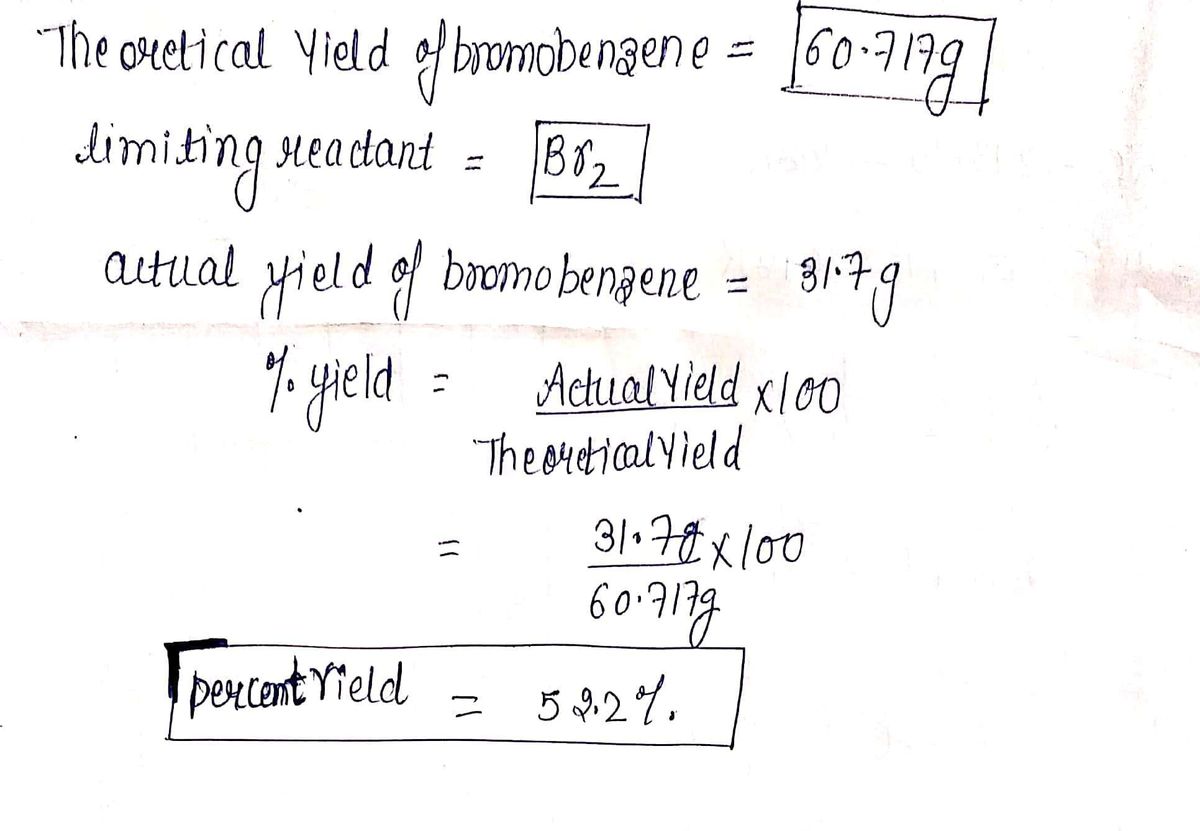 Theoretical Yield of bromobenzene = 60.717g
limiting reactant = Br2
actual yield of bromobenzene = 31.7g
% yield = Actual Yield x100
Theoretical Yield
= 31.7g x100
60.717g
percent Yield = 52.2%.